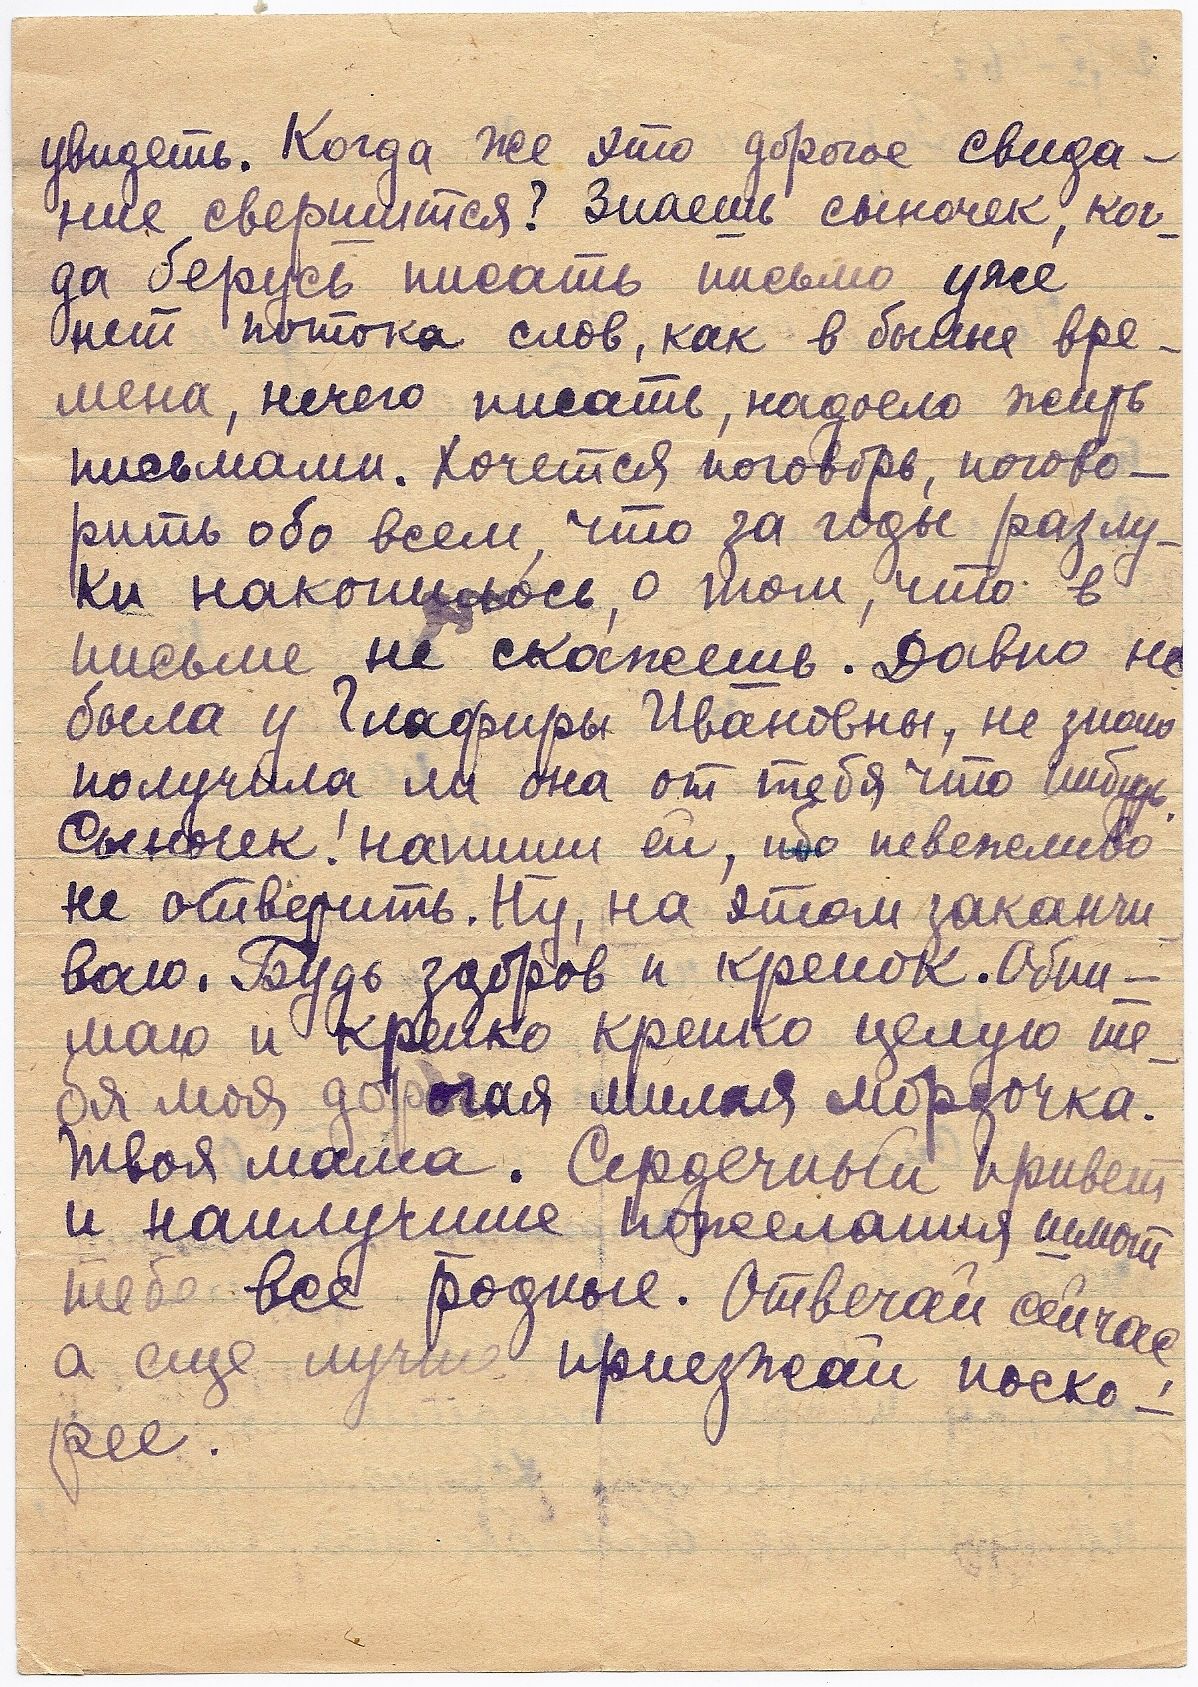 увидеть. Когда же это дорогое свида-
ние свершится? Знаешь сыночек, ког-
да берусь писать письмо уже
нет потока слов, как в былые вре-
мена, нечего писать, надоело жить
письмами. Хочется поговорь, погово-
рить обо всем, что за годы разлу-
ки накопилось, о том, что в
письме не скажешь. Давно не
была у Глафиры Ивановны, не знаю
получила ли она от тебя что нибудь.
Сыночек! напиши ей, ибо невежливо
не ответить. Ну, на этом заканчи-
ваю. Будь здоров и крепок. Обни-
маю и крепко крепко целую те-
бя моя дорогая милая мордочка.
Твоя мама. Сердечный привет
и наилучшие пожелания шлют
тебе все родные. Отвечай сейчас
а еще лучше приезжай поско-!
рее.